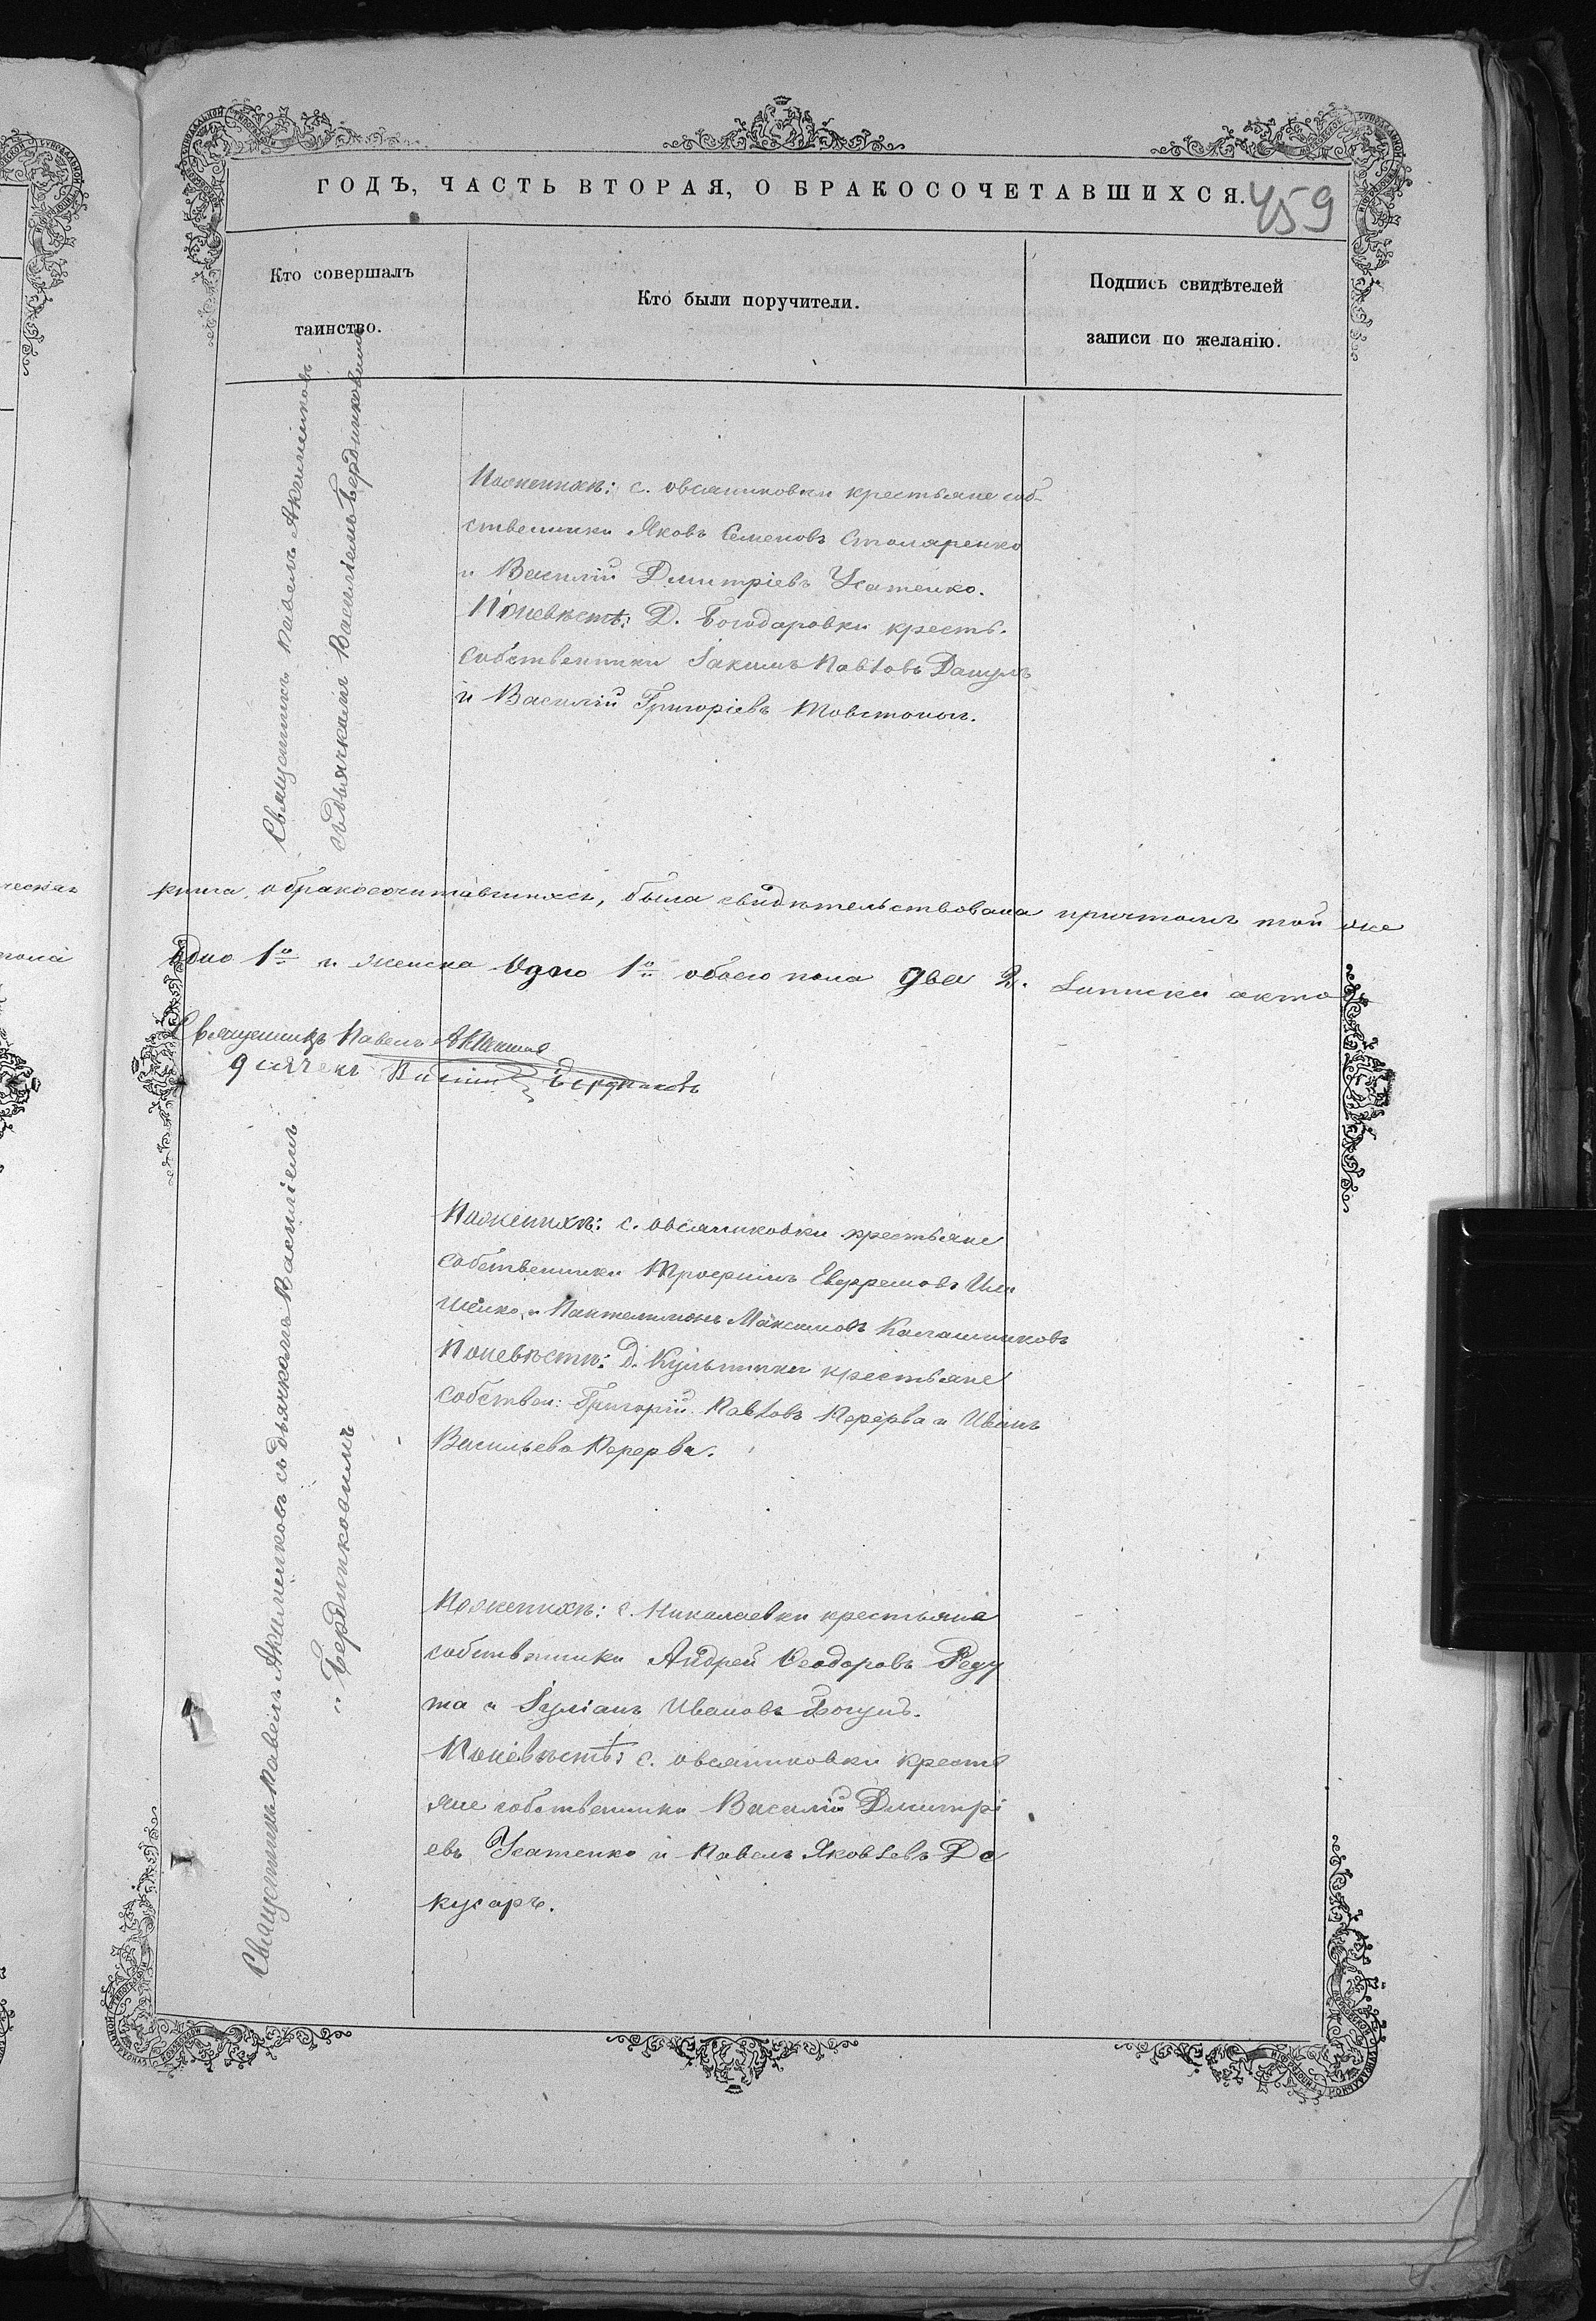 ГОДЪ, ЧАСТЬ ВТОРАЯ, О БРАКОСОЧЕТАВШИХСЯ.
459
Кто совершалъ
таинство.
Кто были поручители.
Подпись свидѣтелей
записи по желанію.
Священникъ Павелъ Акименковъ
съ дьячкомъ Василіемъ Бердниковымъ
По женихѣ: с. Овсяниковки крестьяне соб-
ственники Яковъ Семеновъ Столяренко
и Василій Дмитріевъ Усатенко.
По невѣстѣ: Д. Богодаровки кресть.
собственники Іакимъ Павловъ
и Василій Григоріевъ Товстоногъ.
книга, о бракосочитавшихся, была свидѣтельствована причтомъ той же
одно 1о и женска Одно 1о обоего пола два 2. Записки акто
Священникъ Павелъ Акименковъ
дьячекъ Василій Бердниковъ
Священникъ Павелъ Акименковъ съ дьячкомъ Василіемъ
Бердниковымъ
По женихѣ: с. Овсяниковки крестьяне
собственники Трофимъ Евфремовъ
и Пантелимонъ Максимовъ Калашниковъ
По невѣстѣ: д. крестьяне
собствен: Григорій Павловъ Перерва и Иванъ
Васильевъ Перерва.
По женихѣ: с. Николаевки крестьяне
собственники Андрей Феодоровъ Реду
та и Іуліанъ Ивановъ Богунъ.
По невѣстѣ: с. Овсяниковки кресть
яне собственники Василій Дмитрі
евъ Усатенко и Павелъ Яковлевъ До
кусаръ.